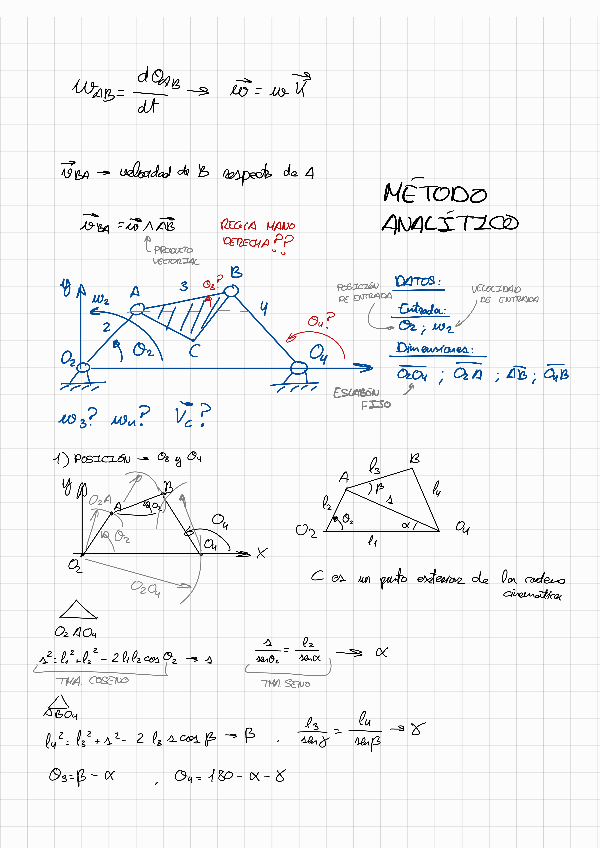 ω_AB = dθ_AB / dt → ω⃗ = ω K⃗
v⃗_BA → velocidad de B respecto de A
MÉTODO
ANALÍTICO
v⃗_BA = ω⃗ ∧ AB
PRODUCTO
VECTORIAL
REGLA MANO
DERECHA??
y
ω₂
A
3
θ₃?
B
4
2
θ₂
C
θ₄?
O₂
O₄
ESLABÓN
FIJO
DATOS:
POSICIÓN
DE ENTRADA
VELOCIDAD
DE ENTRADA
Entrada:
θ₂ ; ω₂
Dimensiones:
O₂O₄ ; O₂A ; AB ; O₄B
ω₃? ω₄? V⃗c?
1) POSICIÓN → θ₃ y θ₄
y
O₂A
A
B
θ₃
θ₂
θ₄
O₂
O₄
X
O₂O₄
A
l₃
B
β
l₂
s
l₄
θ₂
α
O₂
l₁
O₄
C es un punto exterior de la cadena
cinemática
O₂AO₄
s² = l₁² + l₂² - 2l₁l₂cos θ₂ → s
s / senθ₂ = l₂ / senα → α
TMA. COSENO
TMA SENO
ABO₄
l₄² = l₃² + s² - 2 l₃ s cos β → β , l₃ / senγ = l₄ / senβ → γ
θ₃ = β - α , θ₄ = 180 - α - γ